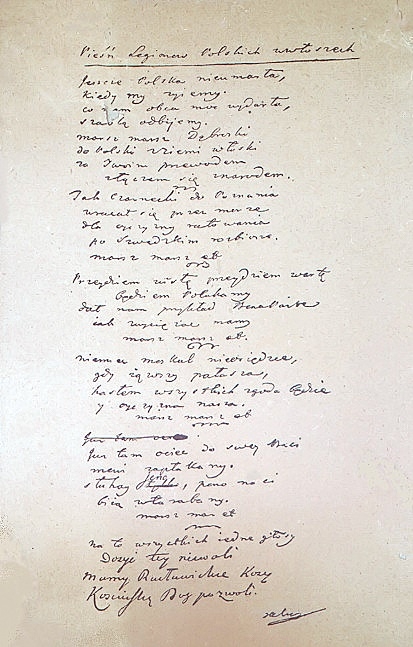 Pieśń Legionow Polskich we włoszech
Jeszcze Polska nieumarła,
kiedy my żyiemy.
co nam obca moc wydarła,
szablą odbijemy.
marsz marsz Dąbroski
do Polski z ziemi włoski
za Twoim przewodem
złączem się z narodem.
Jak Czarnecki do Poznania
wracał się przez morze
dla oyczyzny ratowania
po Szwedzkim rozbiorze.
marsz marsz et
Przeydziem wisłę przeydziem wartę
będziem Polakamy
dał nam przykład Bonaparte
iak zwyciężać mamy
marsz marsz et.
niemiec moskal nieosiędzie,
gdy iąwszy pałasza,
hasłem wszystkich zgoda będzie
y oyczyzna nasza.
marsz marsz et
Już tam
Juz tam ociec do swey Basi
mówi zapłakany.
słuchay ieno, pono nasi
biią w tarabany.
marsz mar et
na to wszystkich iedne głosy
Dosyć tey niewoli
Mamy Racławickie Kosy
Kościuszkę Bog pozwoli.